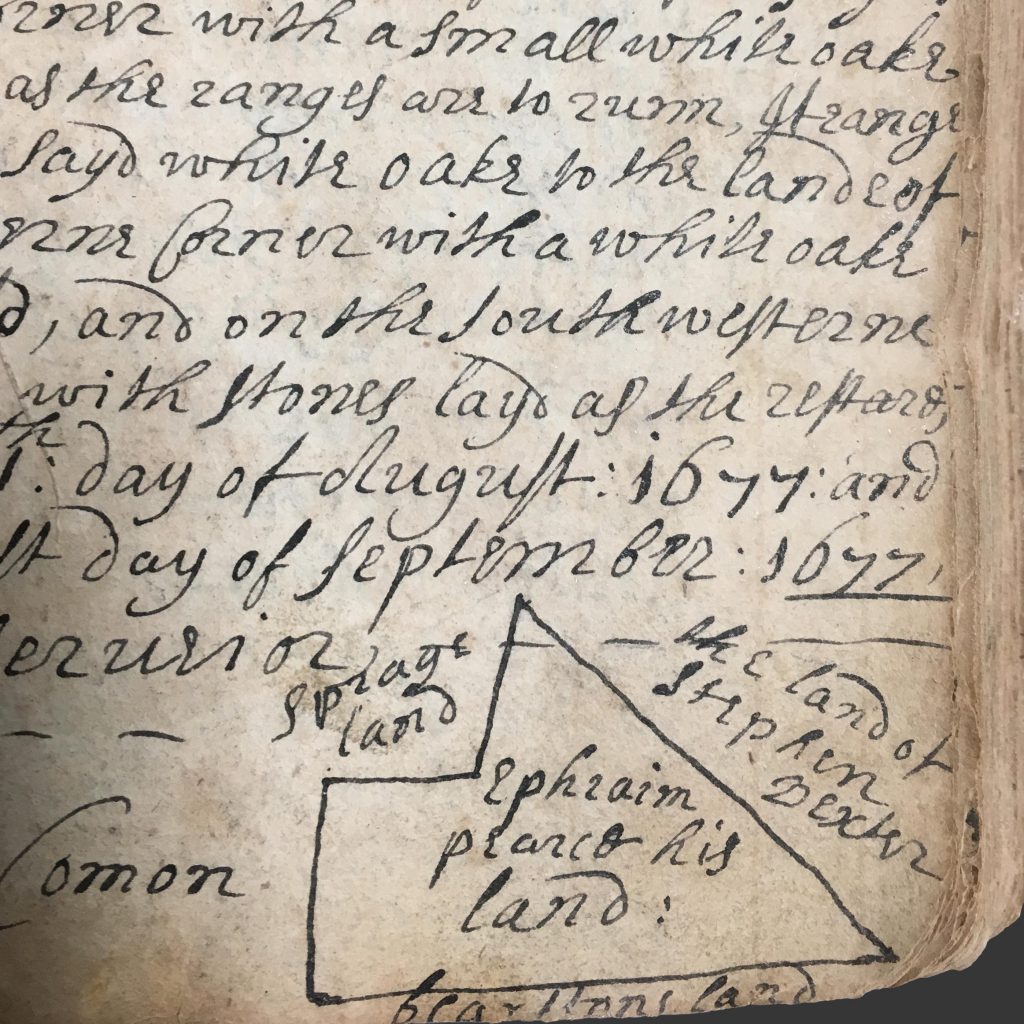 with a small white oake
as the ranges are to runn, It range
sayd white oake to the land of
erne Corner with a white oake
d, and on the southwesterne
with stones layd as the rest are,
th
1: day of August: 1677: and
st day of september: 1677,
erveior
sprage
land
the land of
stephen
Dexter
Ephraim
pearce his
land:
Comon
land